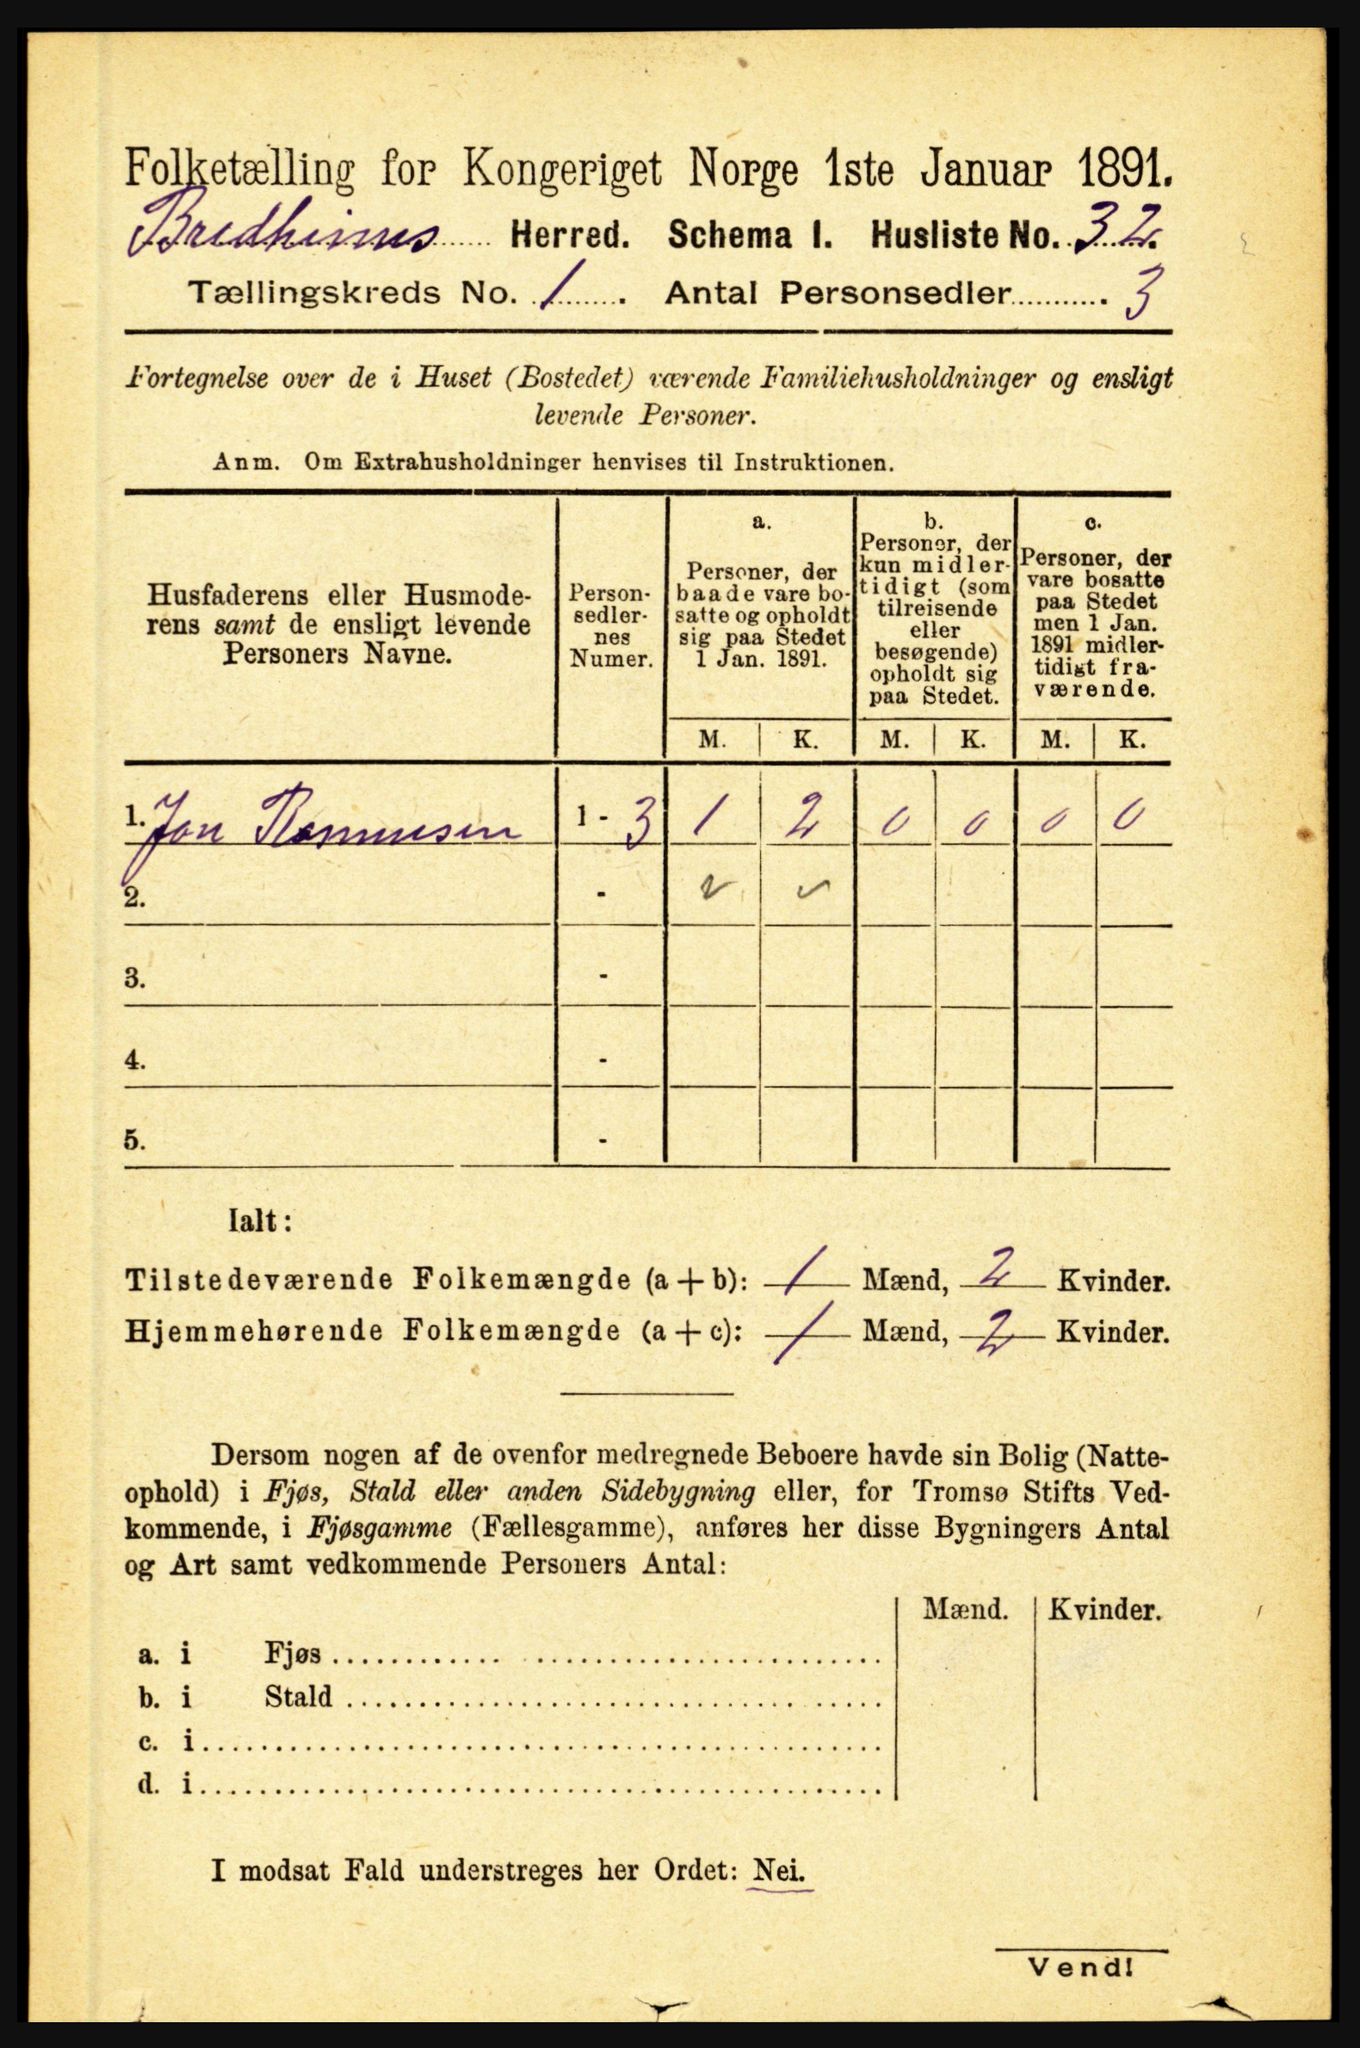 Folketælling for Kongeriget Norge 1ste Januar 1891.
Bredheims Herred. Schema I. Husliste No. 32.
Tællingskreds No. 1. Antal Personsedler 3
Fortegnelse over de i Huset (Bostedet) værende Familiehusholdninger og ensligt
levende Personer.
Anm. Om Extrahusholdninger henvises til Instruktionen.
Husfaderens eller Husmode-
rens samt de ensligt levende
Personers Navne.
Person-
sedler-
nes
Numer.
a.
Personer, der
baade vare bo-
satte og opholdt
sig paa Stedet
1 Jan. 1891.
b.
Personer, der
kun midler-
tidigt (som
tilreisende
eller
besøgende)
opholdt sig
paa Stedet.
c.
Personer, der
vare bosatte
paa Stedet
men 1 Jan.
1891 midler-
tidigt fra-
værende.
M. K. M. K. M. K.
1. Jon Rasmusen 1 - 3 1 2 0 0 0 0
2. -
3. -
4. -
5. -
Ialt:
Tilstedeværende Folkemængde (a + b): 1 Mænd, 2 Kvinder.
Hjemmehørende Folkemængde (a + c): 1 Mænd, 2 Kvinder.
Dersom nogen af de ovenfor medregnede Beboere havde sin Bolig (Natte-
ophold) i Fjøs, Stald eller anden Sidebygning eller, for Tromsø Stifts Ved-
kommende, i Fjøsgamme (Fællesgamme), anføres her disse Bygningers Antal
og Art samt vedkommende Personers Antal:
Mænd. Kvinder.
a. i Fjøs
b. i Stald
c. i
d. i
I modsat Fald understreges her Ordet: Nei.
Vend!